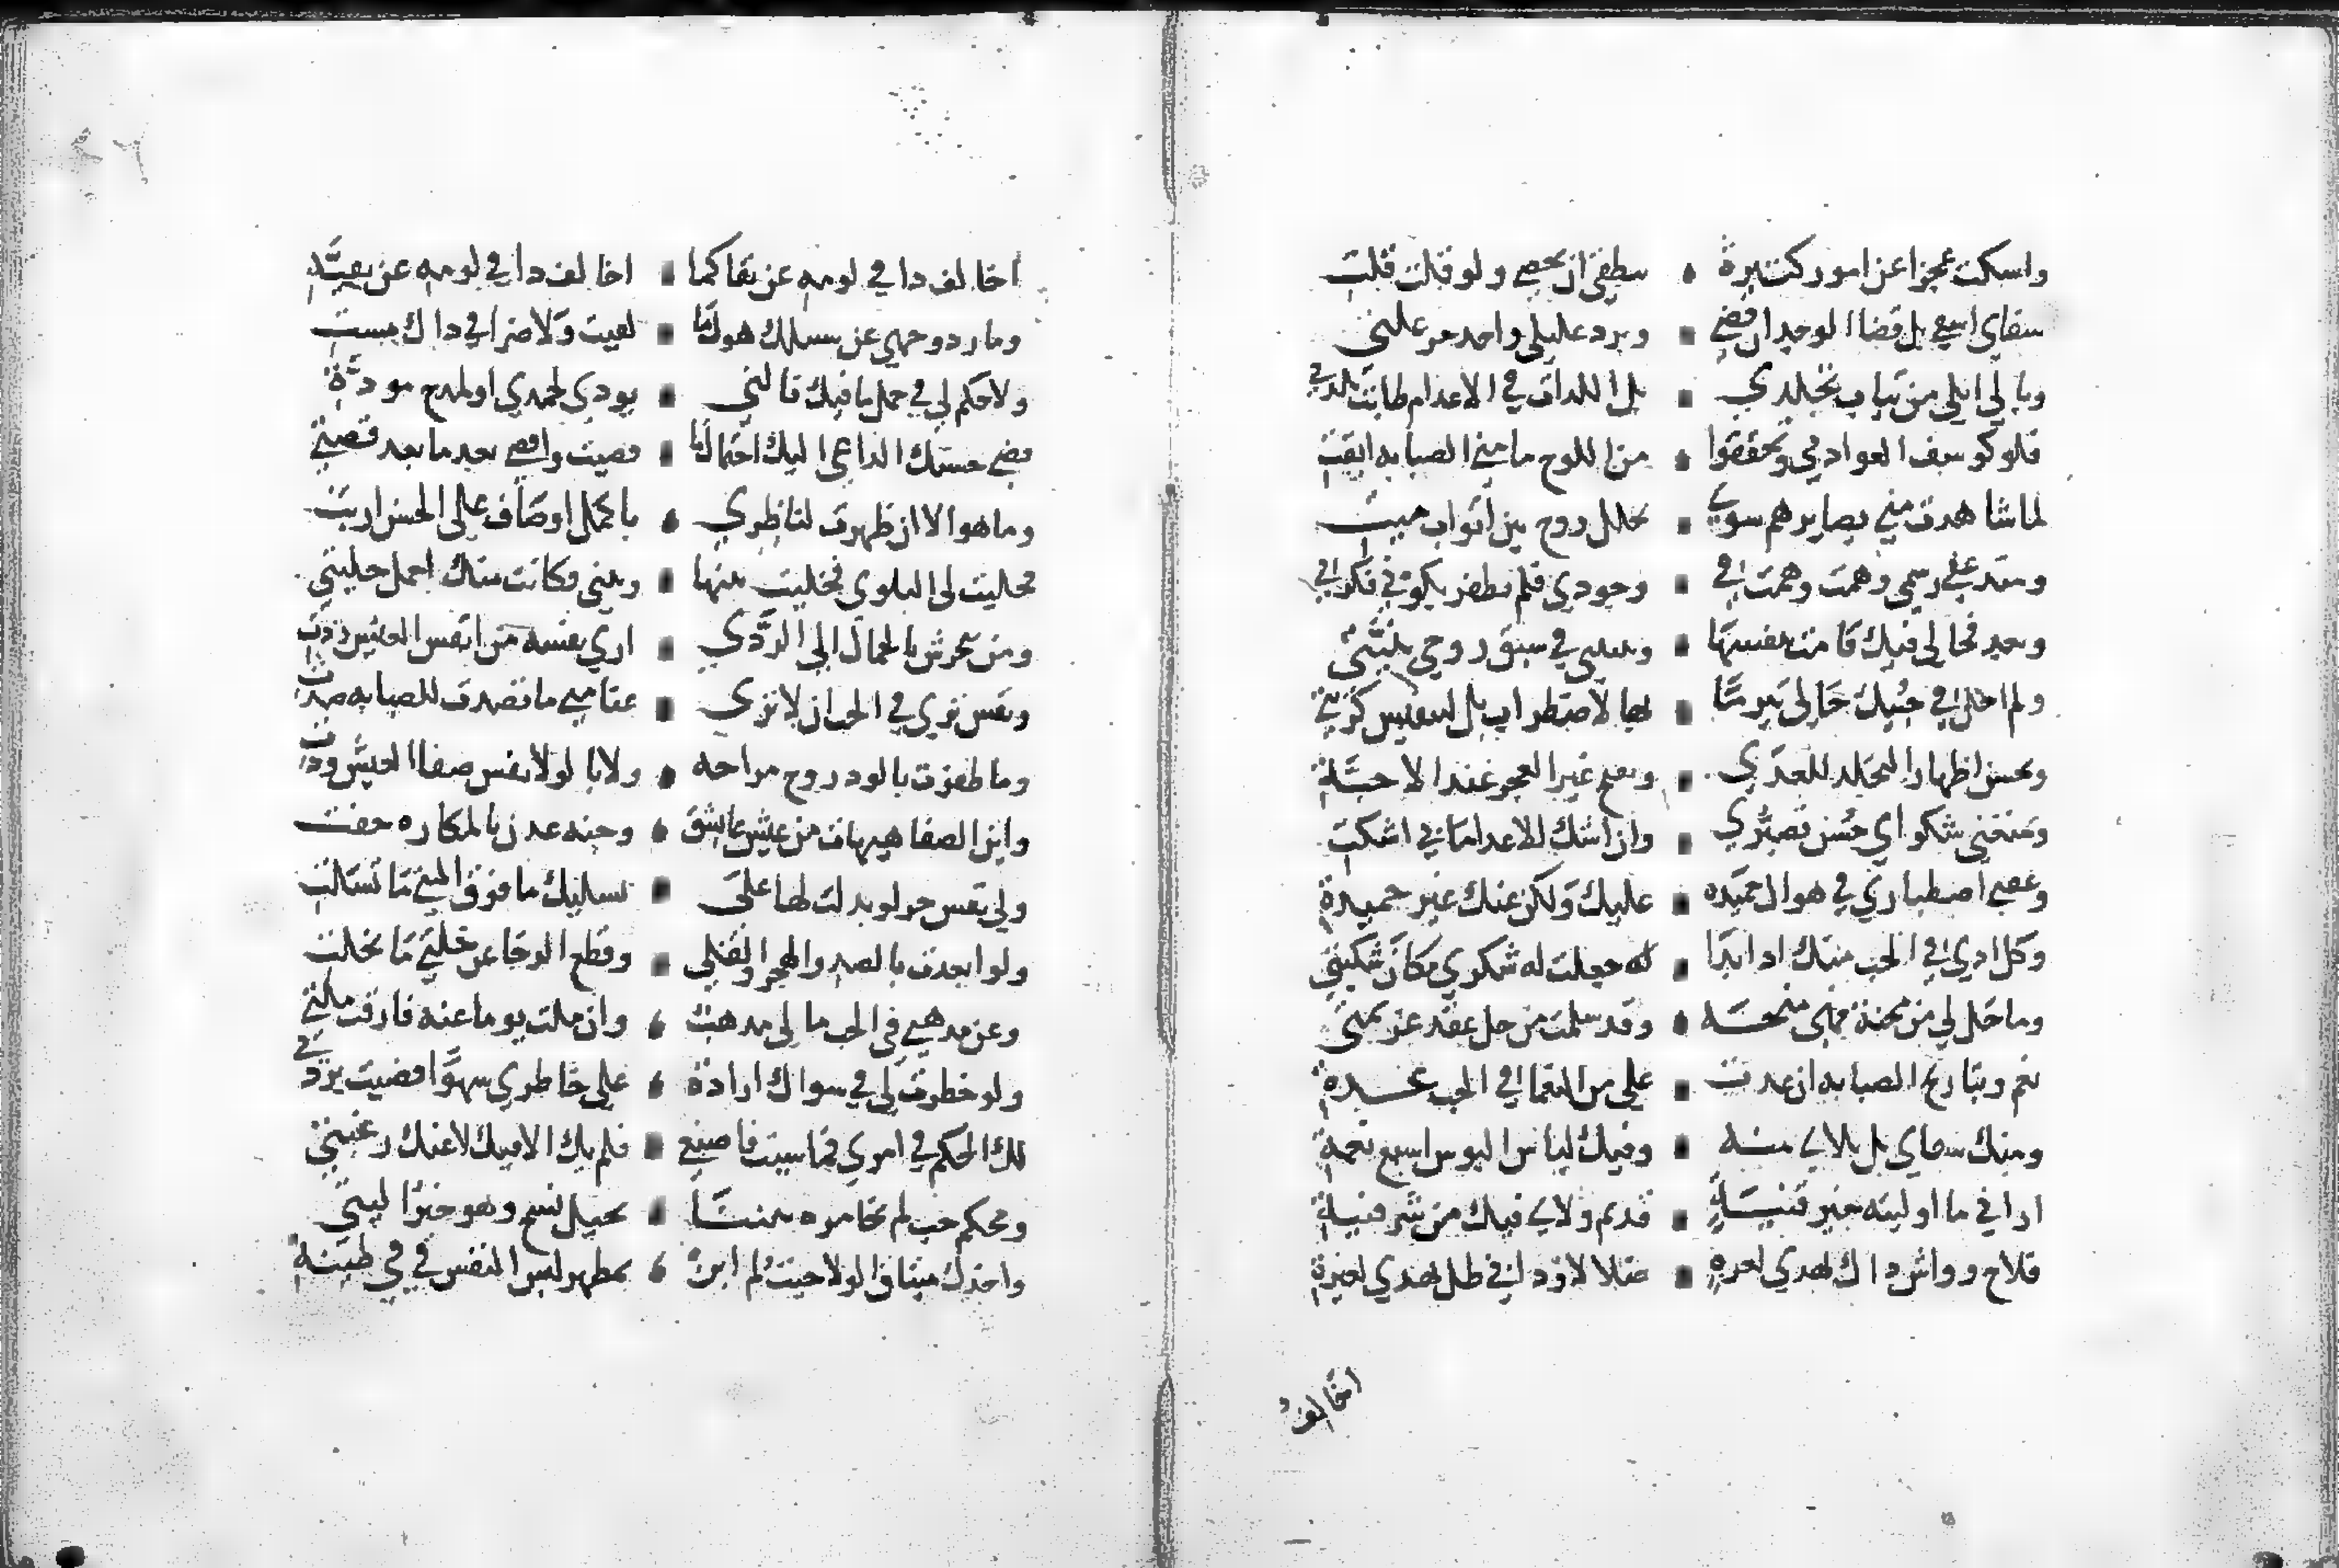 واسكت عجزا عن امور كثيرة • بنطقي لن تحصى ولو قلت قلت
شفاي اشفى بل قضا الوجد ان قضى • وبرد غليلي واحد حر غلتي
وبالي ابلى من ثياب تجلدي • بل الذات في الاعدام نيطت بلذتي
فلو كوشف العواد بي وتحققوا • من اللوح ما مني الصبابه ابقت
لما شاهدت مني بصايرهم سوى • تخلل روح بين اثواب ميت
ومنذ عفى رسمي وهمت وهمت في • وجودي فلم تظفر بكوني فكرتي
وبعد فحالي فيك قامت بنفسها • وبينتي في سبق روحي بنيتي
ولم احك في حبيك حالي تبرما • بها لاضطراب بل لتنفيس كربتي
ويحسن اظهار التجلد للعدى • ويقبح غير العجز عند الاحبة
ويمنعني شكواي حسن تصبري • وان اشك للاعدا ما بي اشكت
وعقبى اصطباري في هواك حميده • عليك ولكن عنك غير حميدة
وكل اذى في الحب منك اذا بدا • له جعلت له شكري مكان شكيتي
وما حل بي من محنة فهي منحه • وقد سلمت من حل عقد عزيمتي
نعم وتباريح الصبابه ان عدت • علي من النعما في الحب عدت
ومنك شقاي بل بلاي منه • وفيك لباس البوس اسبغ نعمة
اراني ما اوليته خير قنية • قديم ولاي فيك من شر فتية
فلاح وواش ذاك يهدي لعزة • ضلالا لا وذا بي ظل يهذي لغيرة
اخالف
اخالف ذا في لومه عن تقا كما • اخالف ذا في لومه عن تقية
وما رد وجهي عن سبيلك هول ما • لقيت ولا ضرا في ذاك مست
ولا حلم لي في حمل ما فيك نالني • يودي لحمدي او لمدح مودتي
قضى حسنك الداعي اليك احتمال ما • قصيت واقصى بعد ما بعد قصتي
وما هو الا ان ظهرت لناظري • باكمل اوصاف على الحسن اربت
فحليت لي البلوى فخليت بينها • وبيني فكانت منك اجمل حليتي
ومن يتحرش بالجمال الى الردى • ارى نفسه من انفس العيش ردت
ونفس ترى في الحب ان لا ترى • عنا متى ما تصدت للصبابه صدت
وما ظفرت بالود روح مراحه • ولا با لولا نفس صفا العيش ودت
واين الصفا هيهات من عيش عاشق • وجنه عدن بالمكاره حفت
ولي نفس حر لو بدلت لها على • تسليك ما فوق المنى ما تسلت
ولو ابعدت بالصد والهجر والقلى • وقطع الرجا عن خلتي ما تخلت
وعن مذهبي في الحب ما لي مذهب • وان ملت يوما عنه فارقت ملتي
ولو خطرت لي في سواك ارادة • على خاطري سهوا قضيت بردتي
لك الحكم في امري فما شيت فاصنعي • فلم تك الا فيك لا عنك رغبتي
ومحكم حب لم يخامره بيننا • تخيل نسخ وهو خير الية
واخذك ميثاق الولا حيث لم ابن • بمظهر لبس النفس في في طينة